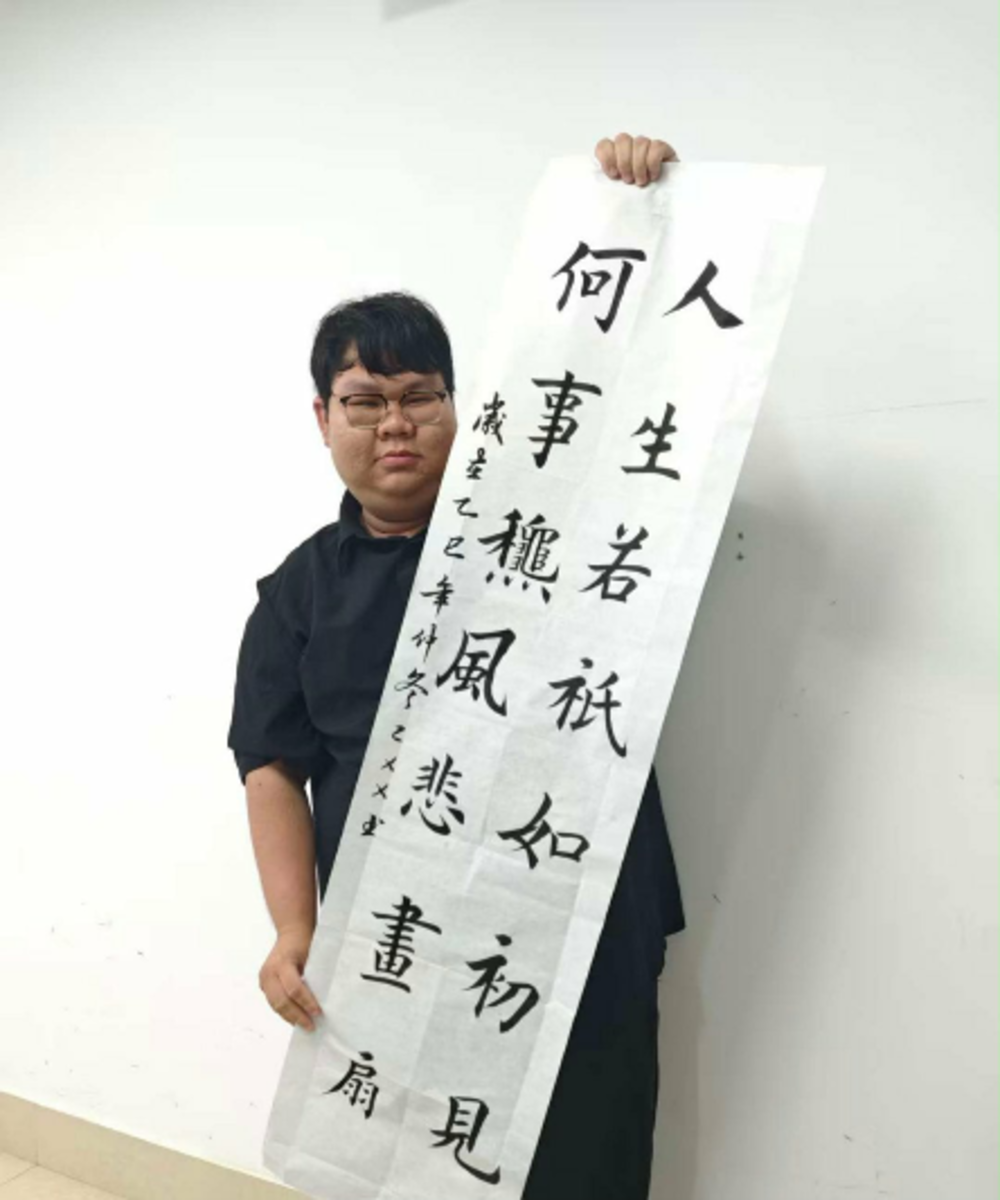 人生若祇如初見
何事龝風悲畫扇
歲在乙巳年仲冬××书